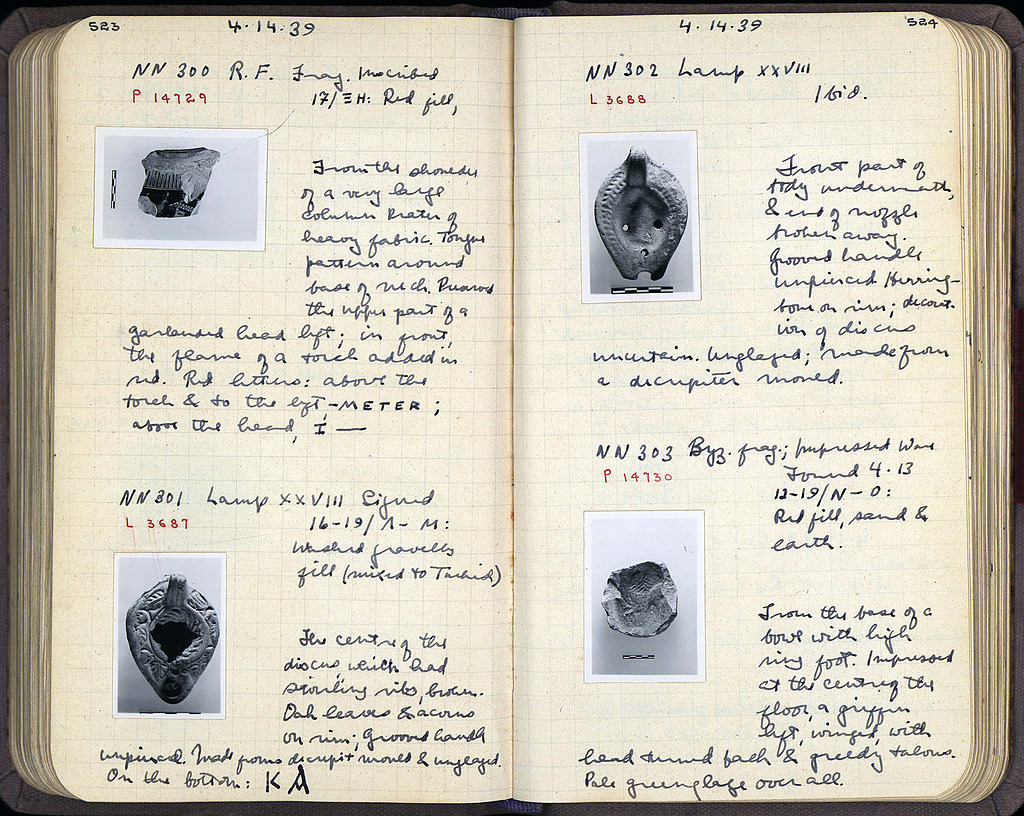 523
4.14.39
NN 300 R.F. Frag. Inscribed
P 14729
17/ΞH: Red fill,
From the shoulder
of a very large
column krater of
heavy fabric. Tongue
pattern around
base of neck. Preserved
the upper part of a
garlanded head left; in front,
the flame of a torch added in
red. Red letters: above the
torch & to the left, -METER;
above the head, I —
NN 301 Lamp XXVIII Signed
L 3687
16-19/Λ-M:
Washed gravelly
fill (mixed to Turkish)
The centre of the
discus, which had
spiralling ribs, broken.
Oak leaves & acorns
on rim; Grooved handle
unpierced. Made from decrepit mould & unglazed.
On the bottom: K A
4.14.39
524
NN 302 Lamp XXVIII
L 3688
Ibid.
Front part of
body underneath,
& end of nozzle
broken away.
Grooved handle
unpierced. Herring-
bone on rim; decorat-
ion of discus
uncertain. Unglazed; made from
a decrepit mould.
NN 303 Byz. frag.; Impressed Ware
P 14730
Found 4.13
12-19/N-O:
Red fill, sand &
earth.
From the base of a
bowl with high
ring foot. Impressed
at the centre of the
floor, a griffin
left, winged, with
head turned back & greedy talons.
Pale green glaze over all.